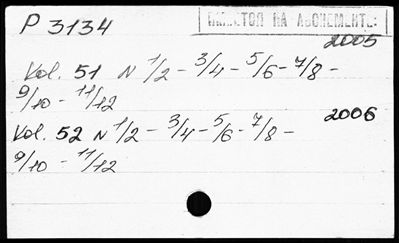 P 3134
НА АБОНЕМЕНТЕ:
2005
Vol. 51 N 1/2 - 3/4 - 5/6 - 7/8 -
9/10 - 11/12
2006
Vol. 52 N 1/2 - 3/4 - 5/6 - 7/8 -
9/10 - 11/12